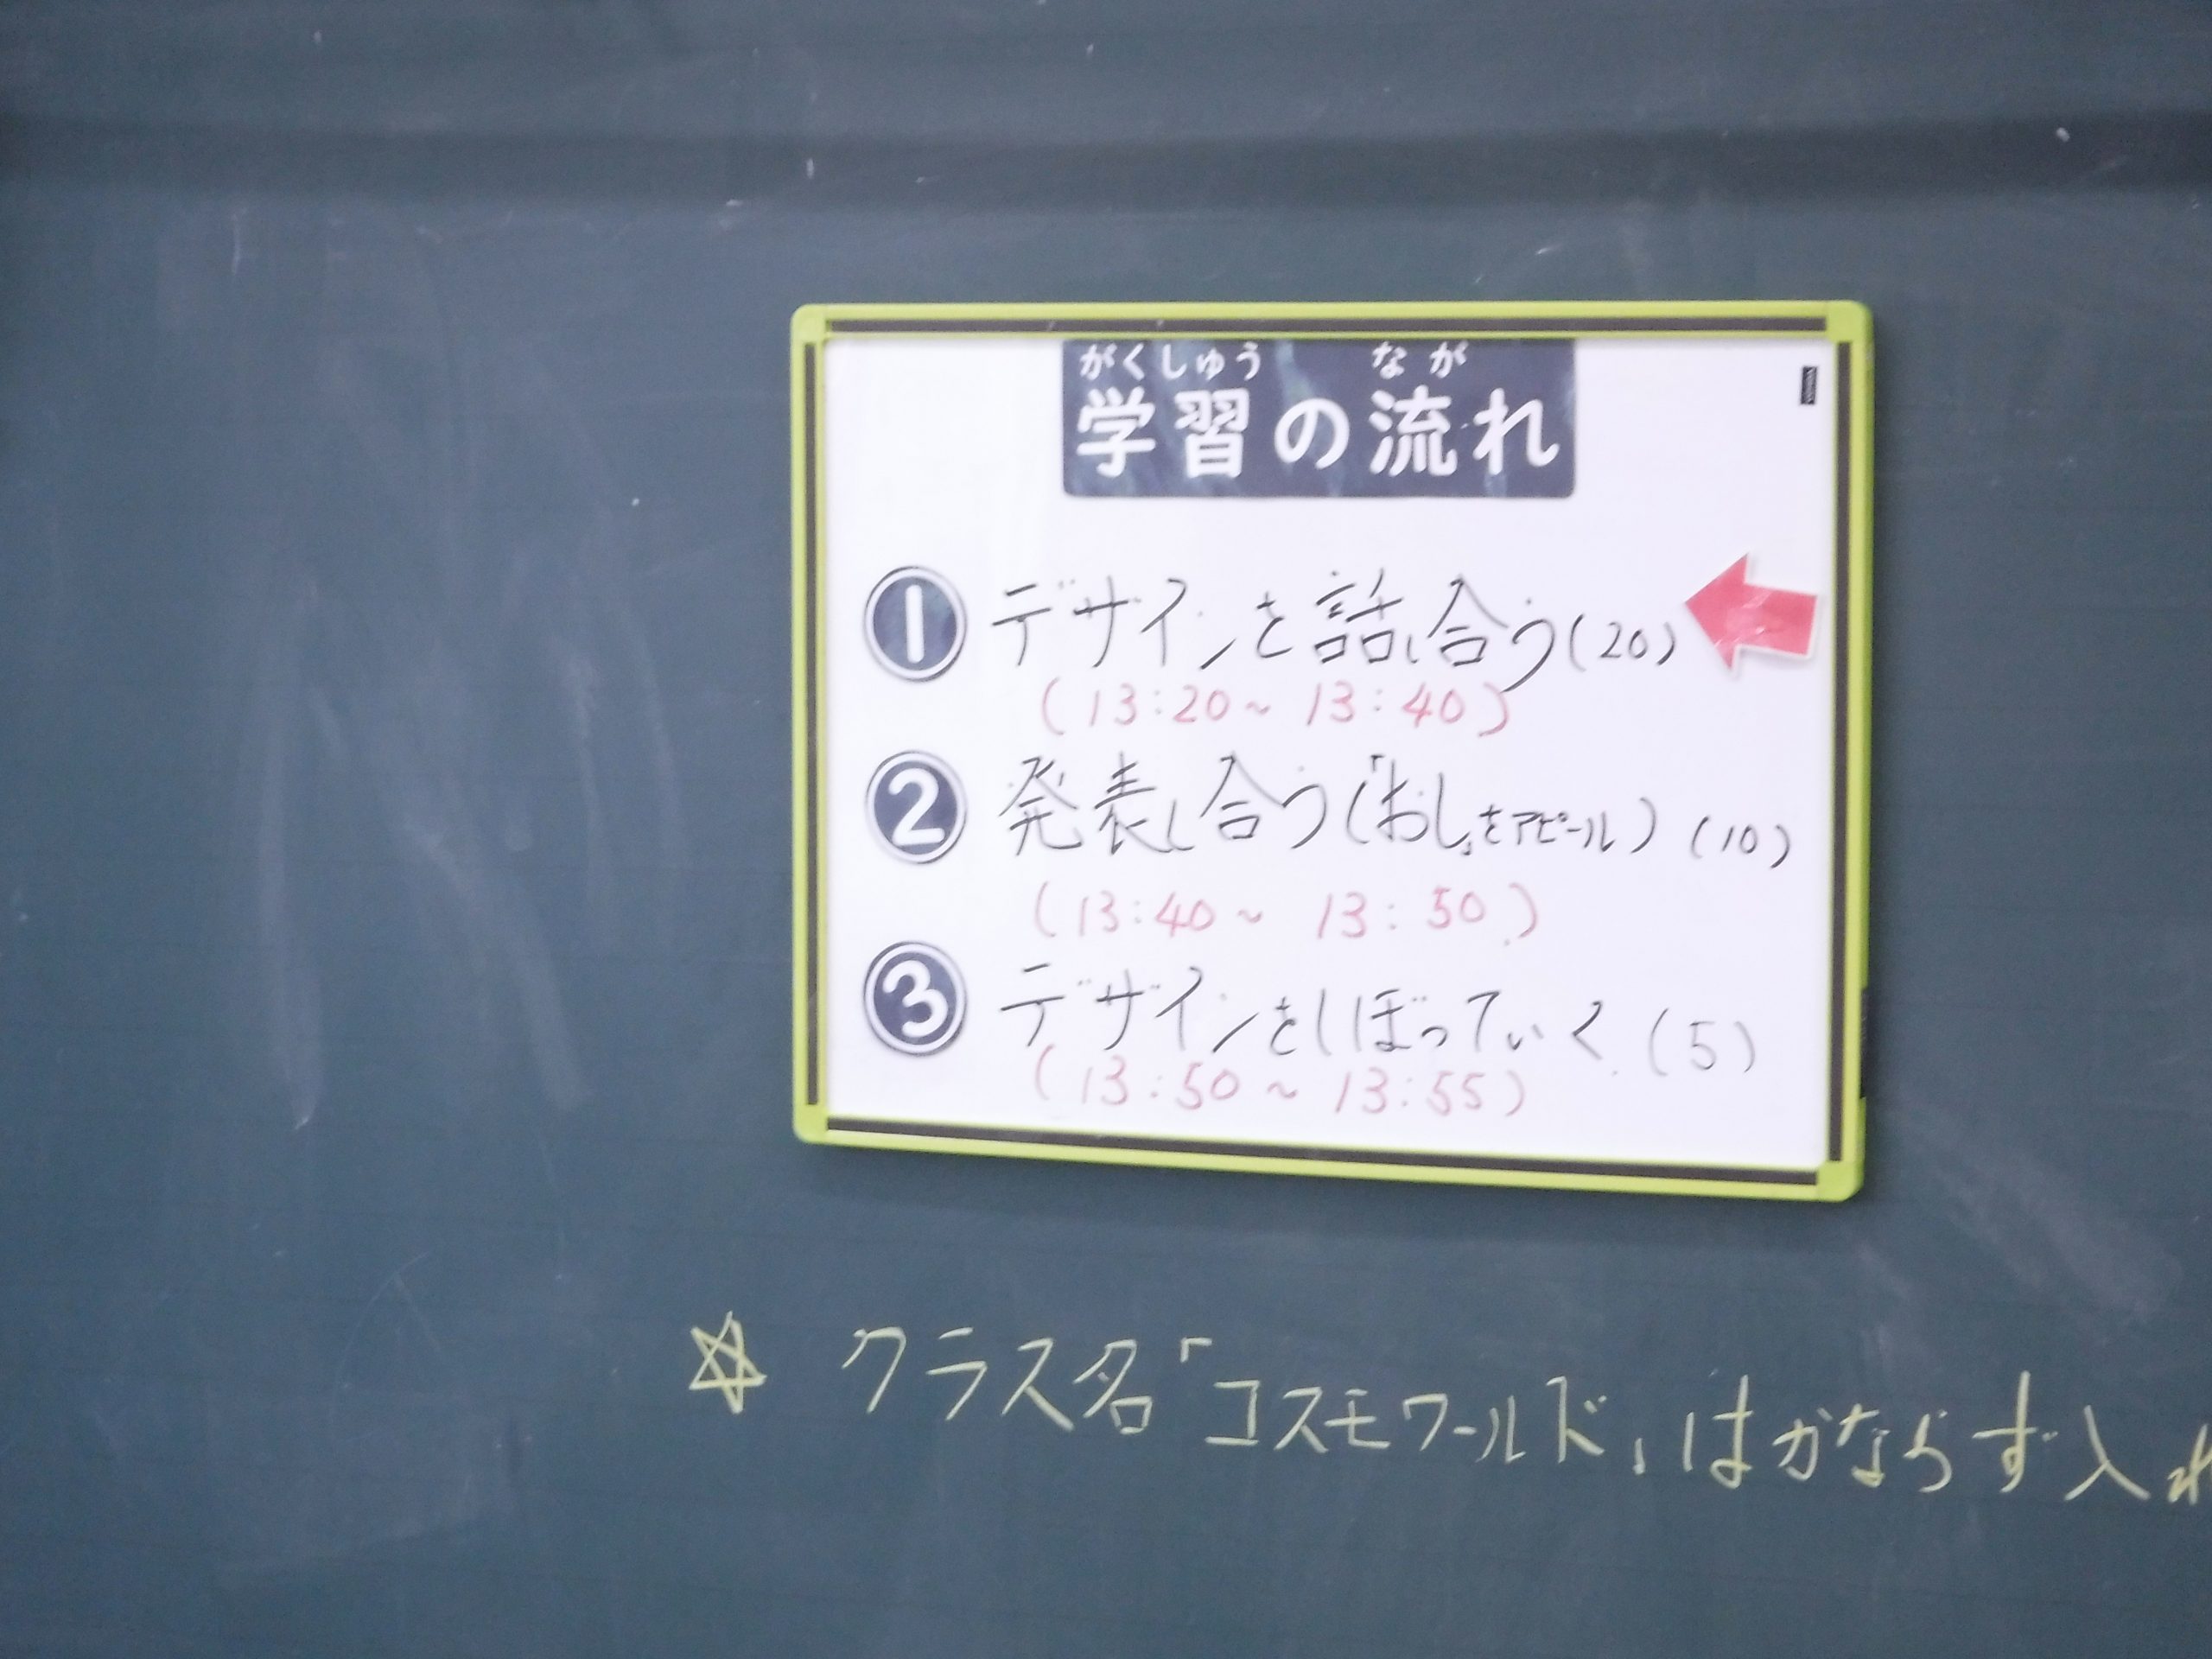 がくしゅう なが
学習の流れ
① デザインを話し合う(20)
(13:20~13:40)
② 発表し合う(「おし」をアピール) (10)
(13:40~13:50)
③ デザインをしぼっていく (5)
(13:50~13:55)
☆ クラス名「コスモワールド」はかならず入れ